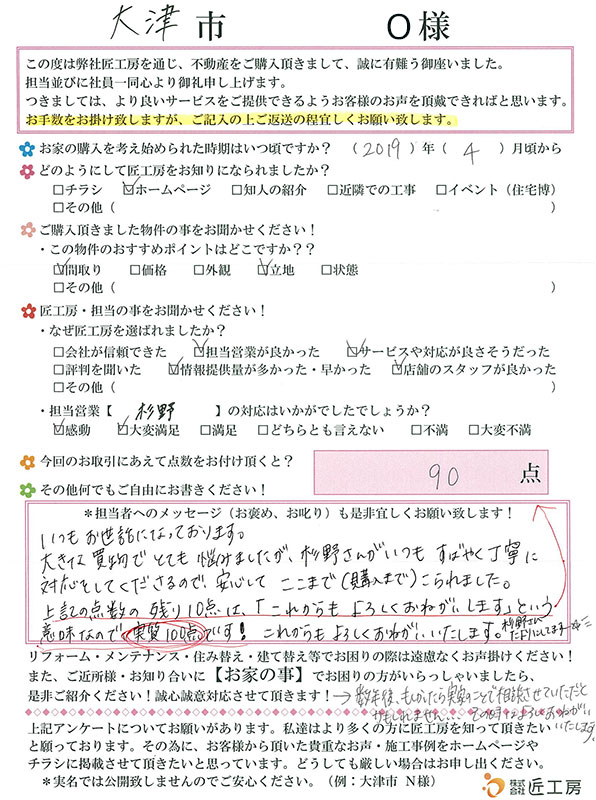 大津 市 O様
この度は弊社匠工房を通じ、不動産をご購入頂きまして、誠に有難う御座いました。
担当並びに社員一同心より御礼申し上げます。
つきましては、より良いサービスをご提供できるようお客様のお声を頂戴できればと思います。
お手数をお掛け致しますが、ご記入の上ご返送の程宜しくお願い致します。
お家の購入を考え始められた時期はいつ頃ですか？ （2019）年（ 4 ）月頃から
どのようにして匠工房をお知りになられましたか？
□チラシ ☑ホームページ □知人の紹介 □近隣での工事 □イベント（住宅博）
□その他（ ）
ご購入頂きました物件の事をお聞かせください！
・この物件のおすすめポイントはどこですか？？
☑間取り □価格 □外観 ☑立地 □状態
□その他（ ）
匠工房・担当の事をお聞かせください！
・なぜ匠工房を選ばれましたか？
□会社が信頼できた ☑担当営業が良かった ☑サービスや対応が良さそうだった
□評判を聞いた ☑情報提供量が多かった・早かった ☑店舗のスタッフが良かった
□その他（ ）
・担当営業【 杉野 】の対応はいかがでしたでしょうか？
☑感動 ☑大変満足 □満足 □どちらとも言えない □不満 □大変不満
今回のお取引にあえて点数をお付け頂くと？ 90 点
その他何でもご自由にお書きください！
＊担当者へのメッセージ（お褒め、お叱り）も是非宜しくお願い致します！
いつもお世話になっております。
大きな買物でとても悩みましたが、杉野さんがいつもすばやく丁寧に
対応をしてくださるので、安心してここまで（購入まで）こられました。
上記の点数の残り10点は、「これからもよろしくおねがいします」という
意味なので実質100点です！ これからもよろしくおねがいいたします。
杉野さん
たよりにしてます
リフォーム・メンテナンス・住み替え・建て替え等でお困りの際は遠慮なくお声掛けください！
また、ご近所様・お知り合いに【お家の事】でお困りの方がいらっしゃいましたら、
是非ご紹介ください！誠心誠意対応させて頂きます！
→数年後、もしかしたら実家のことで相談させていただく
かもしれません… その時はよろしくおねがい
いたします。
上記アンケートについてお願いがあります。私達はより多くの方に匠工房を知って頂きたい
と願っております。その為に、お客様から頂いた貴重なお声・施工事例をホームページや
チラシに掲載させて頂きたいと思っています。どうしても厳しい場合はお申し出ください。
＊実名では公開致しませんのでご安心ください。（例：大津市 N様）
株式会社 匠工房